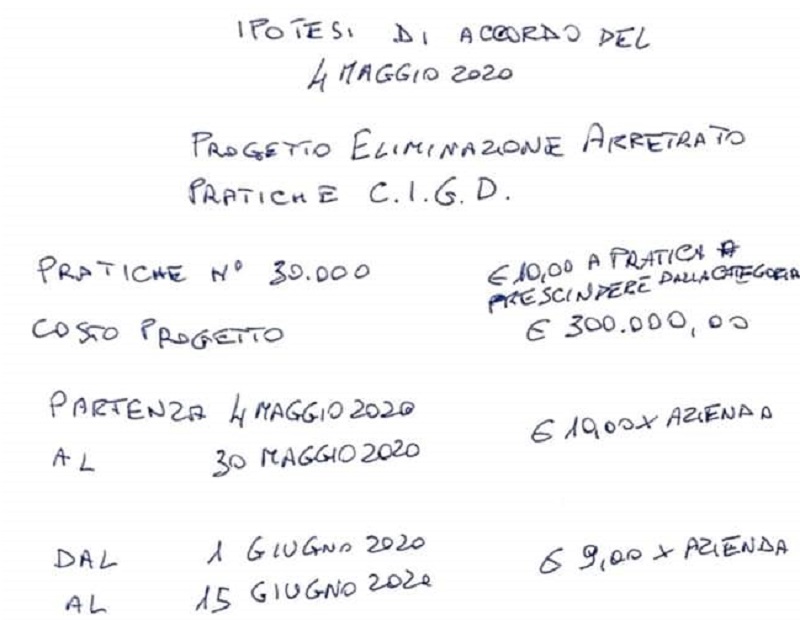 IPOTESI DI ACCORDO DEL
4 MAGGIO 2020
PROGETTO ELIMINAZIONE ARRETRATO
PRATICHE C.I.G.D.
PRATICHE N° 30.000
€ 10,00 A PRATICA A
PRESCINDERE DALLA CATEGORIA
COSTO PROGETTO € 300.000,00
PARTENZA 4 MAGGIO 2020
AL 30 MAGGIO 2020
€ 10,00 X AZIENDA
DAL 1 GIUGNO 2020
AL 15 GIUGNO 2020
€ 9,00 X AZIENDA